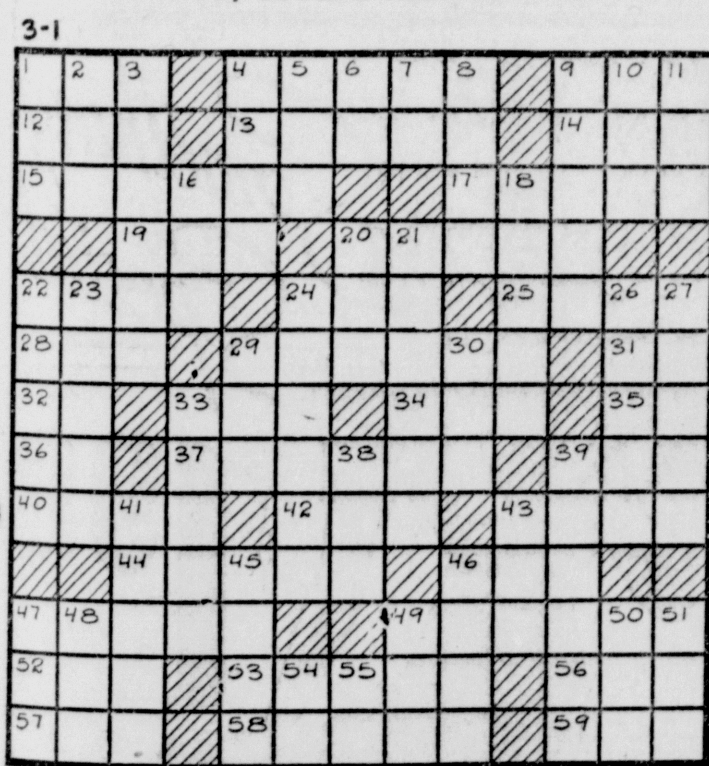 3-1
1 2 3 4 5 6 7 8 9 10 11
12 13 14
15 16 17 18
19 20 21
22 23 24 25 26 27
28 29 30 31
32 33 34 35
36 37 38 39
40 41 42 43
44 45 46
47 48 49 50 51
52 53 54 55 56
57 58 59